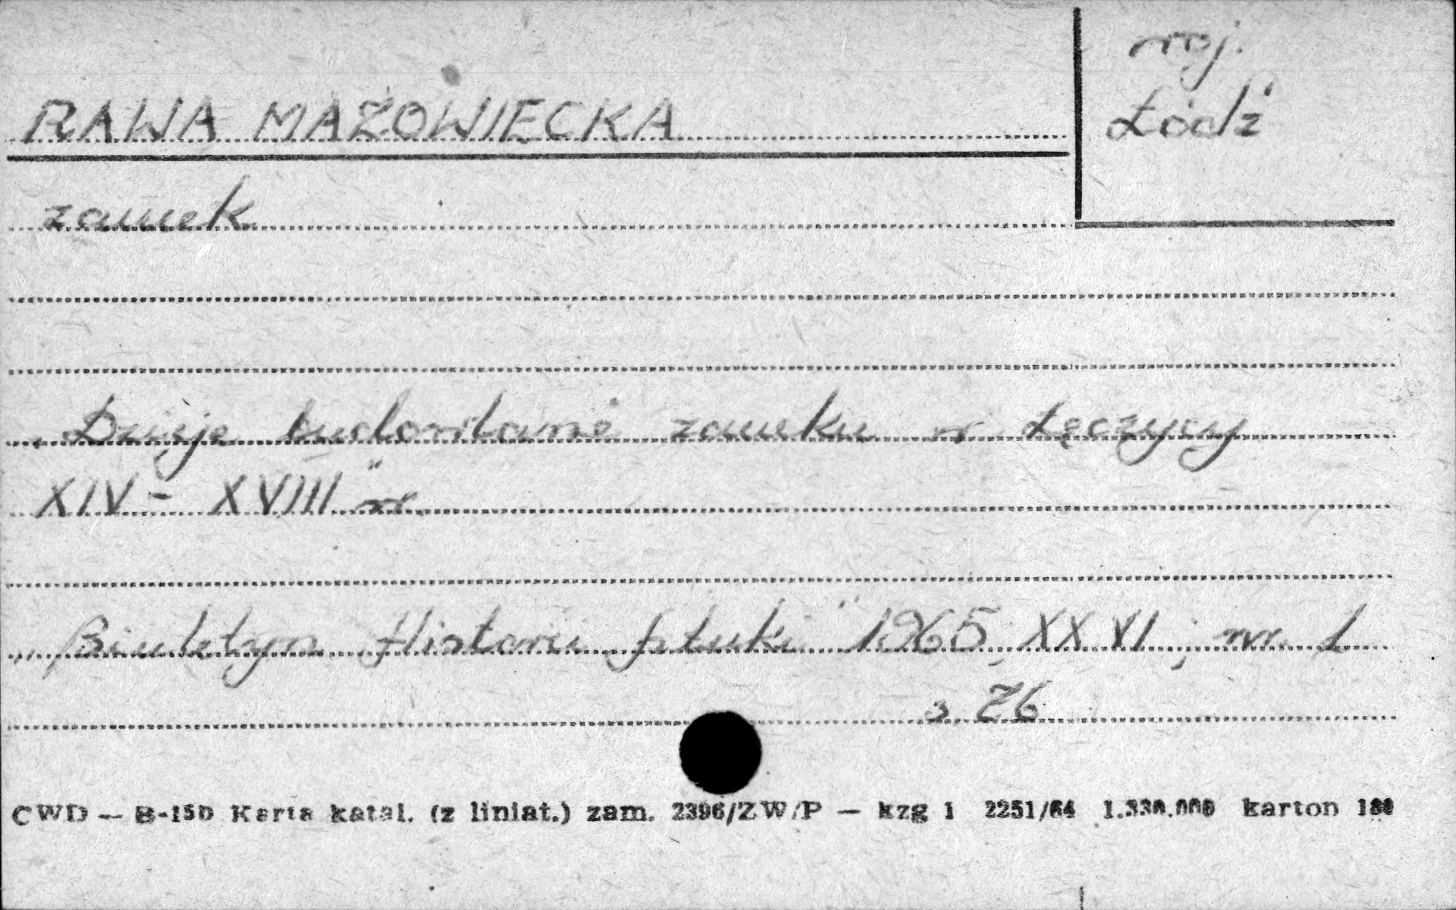 woj.
Łódź
RAWA MAZOWIECKA
zamek
„Dzieje budowlane zamku w Łęczycy
XIV - XVIII" w.
„Biuletyn Historii Sztuki" 1965, XXVI; nr. 1
s. 76
CWD — B-150 Karta katal. (z liniat.) zam. 2396/ZW/P — kzg 1 2251/64 1.330.000 karton 180